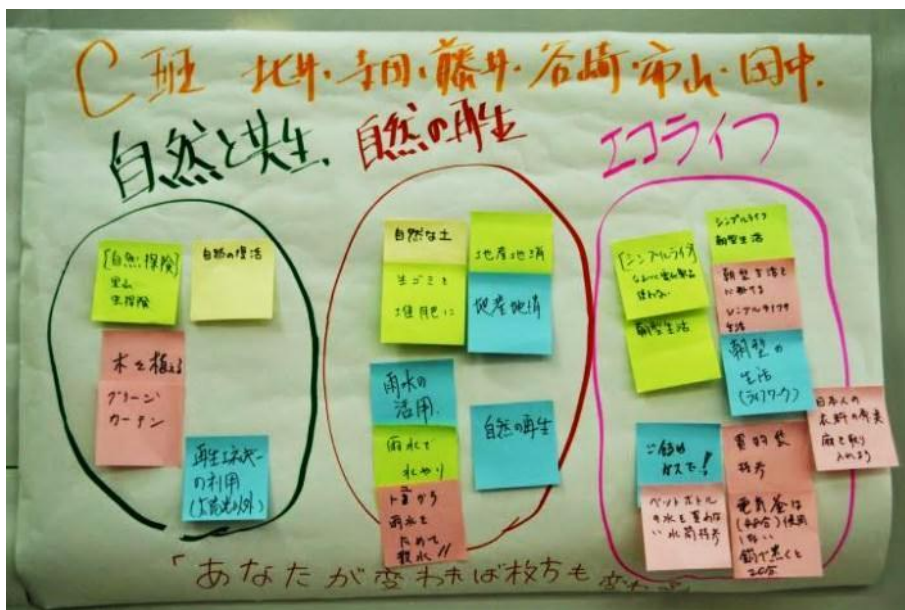 C班 北井・寺田・藤井・谷崎・市山・田中.
自然と共生.
自然の再生
エコライフ
[自然探険]
里山
生探険
自然の復活
木を植える
グリーン
カーテン
再生エネルギー
の利用
(太陽光以外)
自然な土
生ごみを
堆肥に
地産地消
地産地消
雨水の
活用.
雨水で
水やり
から
雨水を
ためて
散水!!
自然の再生
[シンプルライフ]
使わない
朝型生活
シンプルライフ
朝型生活
朝型生活と
シンプルライフ
生活
朝型の
生活
(ライフワーク)
日本人の
麻を取り
入れよう
ご飯は
ガスで!
ペットボトル
の水を買わない
水筒持参
買物袋
持参
電気釜は
使用
しない
鍋で炊くと
20分
「あなたが変われば枚方も変わる」